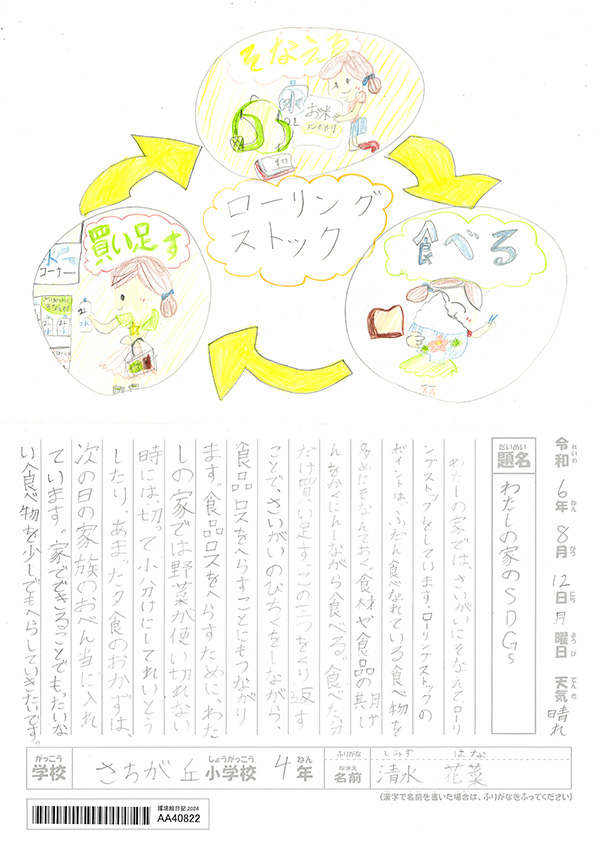 そなえる
水
2L
お米
ローリング
ストック
買い足す
水
コーナー
2L
2L
2L
水
食べる
令和6年8月12日月曜日 天気晴れ
れいわ
ねん
がつ
にち
ようび
てんき
だいめい
題名
わたしの家のSDGs
わたしの家では、さいがいにそなえてローリ
ングストックをしています。ローリングストックの
ポイントは、ふだん食べなれている食べ物を
多めにそなえておく。食材や食品の期げ
んをかくにんしながら食べる。食べた分
だけ買い足す。この三つをくり返す
ことで、さいがいのびちくをしながら、
食品ロスをへらすことにもつながり
ます。食品ロスをへらすために、わた
しの家では野菜が使い切れない
時には、切って小分けにしてれいとう
したり、あまった夕食のおかずは、
次の日の家族のおべん当に入れ
ています。家でできることでもったいな
い食べ物を少しでもへらしていきたいです。
がっこう
学校
さちが丘
しょうがっこう
小学校
4
ねん
年
ふりがな
しみず はな
なまえ
名前
清水 花菜
(漢字で名前を書いた場合は、ふりがなをふってください)
環境絵日記2024
AA40822